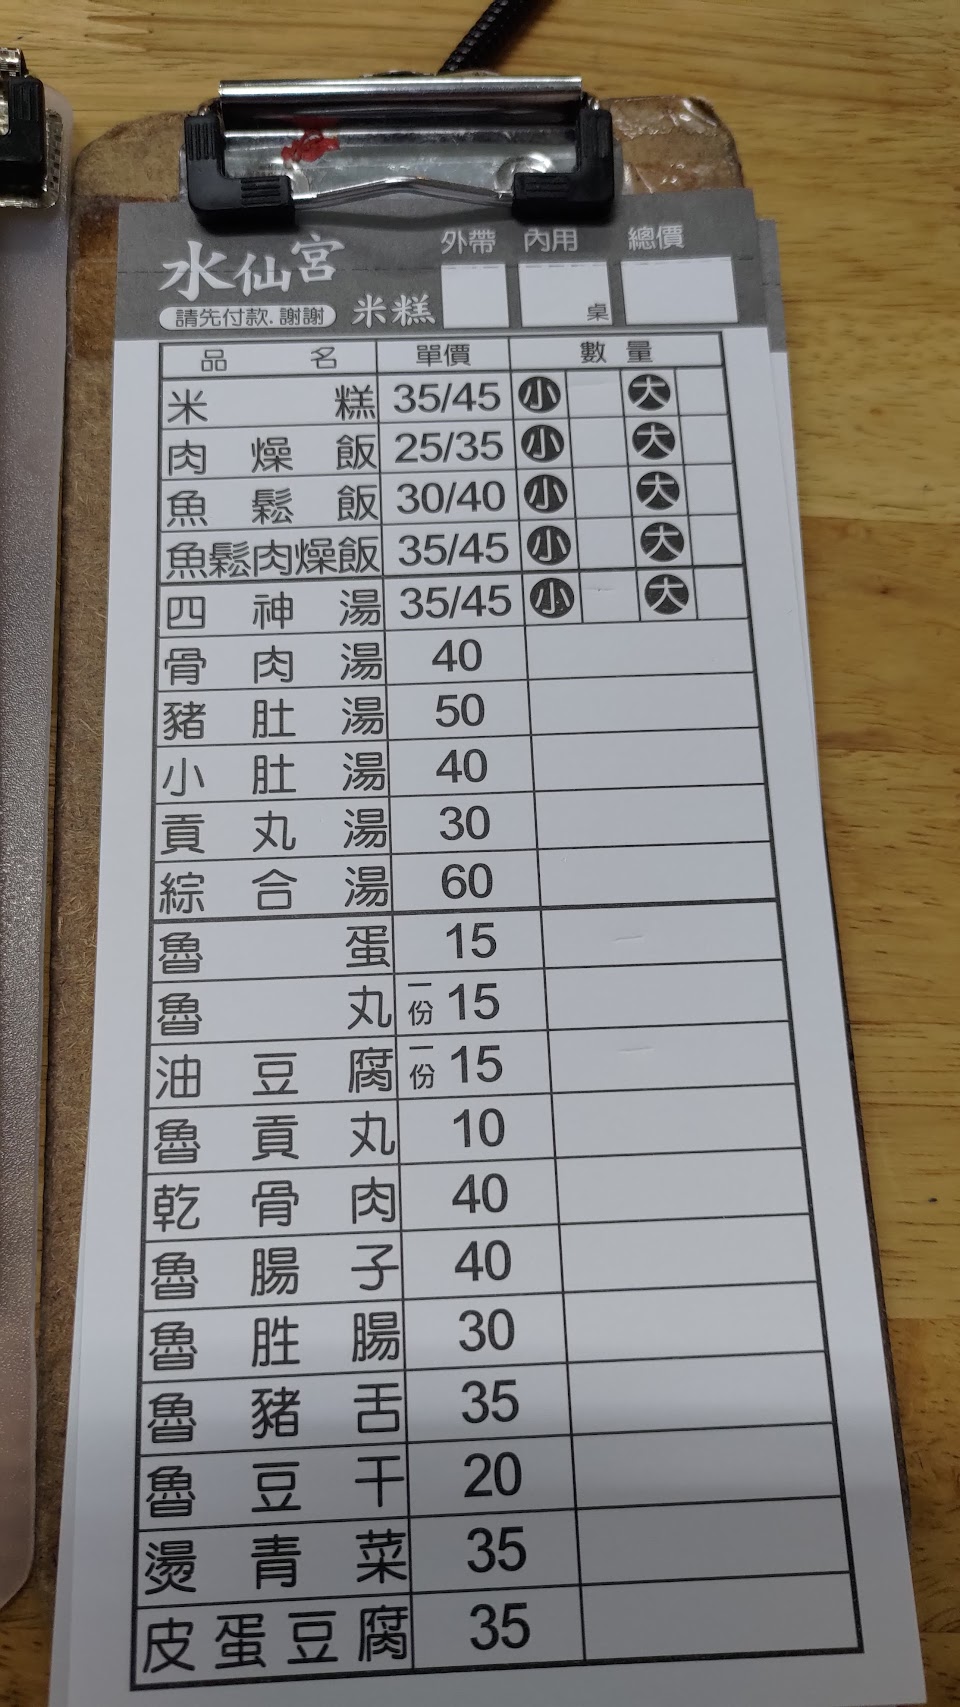 水仙宮
請先付款.謝謝
米糕
外帶 內用 總價
桌
品名 單價 數量
米糕 35/45 小 大
肉燥飯 25/35 小 大
魚鬆飯 30/40 小 大
魚鬆肉燥飯 35/45 小 大
四神湯 35/45 小 大
骨肉湯 40
豬肚湯 50
小肚湯 40
貢丸湯 30
綜合湯 60
魯蛋 15
魯丸 一份 15
油豆腐 一份 15
魯貢丸 10
乾骨肉 40
魯腸子 40
魯胜腸 30
魯豬舌 35
魯豆干 20
燙青菜 35
皮蛋豆腐 35